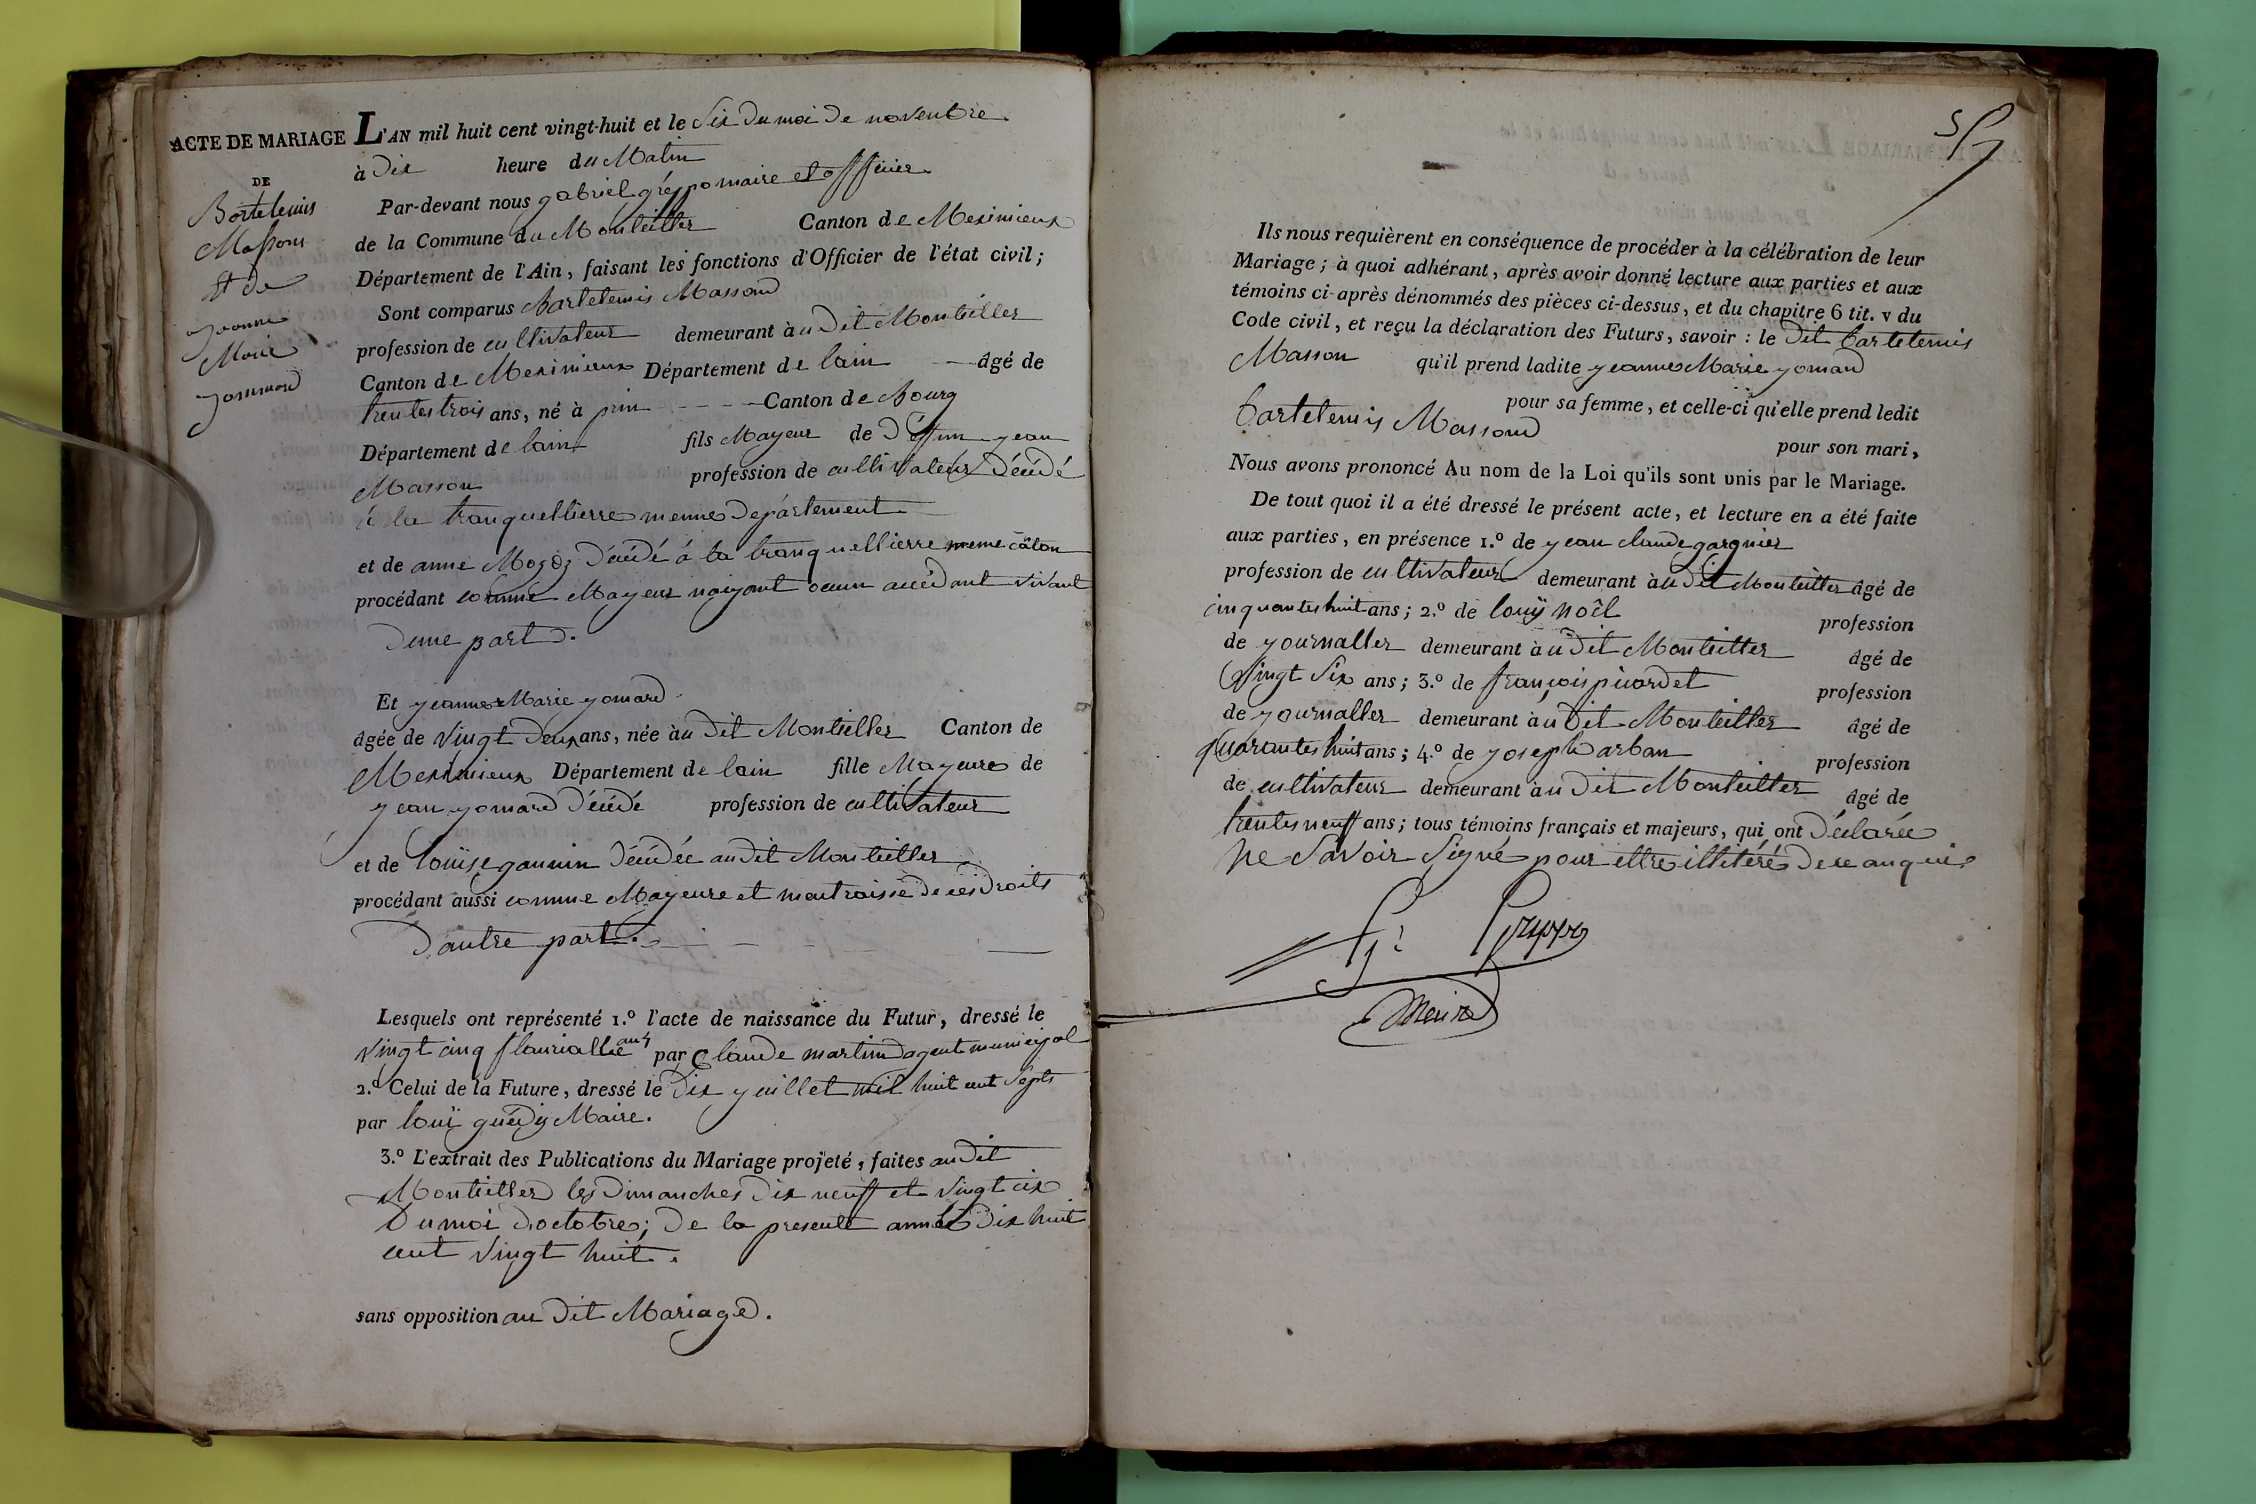 ACTE DE MARIAGE
DE
Bartelemis
Massons
Et de
yeanne
Marie
yommard
L'AN mil huit cent vingt-huit et le Six du moi de novenbre
à Dix heure du Matin
Par-devant nous gabriel gréppo maire et officier
de la Commune du Monteillier Canton de Meximieux
Département de l'Ain, faisant les fonctions d'Officier de l'état civil;
Sont comparus Bartelemis Massond
profession de cultivateur demeurant àu Dit Monteiller
Canton de Meximieux Département de lain âgé de
trentes trois ans, né à prin Canton de Bourg
Département de lain fils Mayeur de Déffun yean
Masson profession de cultivateur Décédé
à la tranquellierre meme Département
et de anne Mogoz Décédé à la tranquellierre meme câton
procédant comme Mayeur naiyant ocun accédant vivant
Dune part.
Et yeanne Marie yomard
âgée de vingt Deux ans, née àu Dit Montieller Canton de
Meximieux Département de lain fille Mayeure de
yean yomard Décédé profession de cultivateur
et de Louïse gannin Décédée au dit Montieller
procédant aussi comme Mayeure et maitraisse de ces Droits
D'autre part.
Lesquels ont représenté 1.º l'acte de naissance du Futur, dressé le
vingt cinq flauriallie an 4 par Claude martin dagent municipal
2.º Celui de la Future, dressé le Dix yuillet mil huit cent Sept
par louï guédy Maire.
3.º L'extrait des Publications du Mariage projeté, faites au Dit
Montieller les Dimanches Dix neuff et vingt cix
Du moi Doctobre; De la presente année Dix huit
cent vingt huit.
sans opposition au Dit Mariage.
57
Ils nous requièrent en conséquence de procéder à la célébration de leur
Mariage; à quoi adhérant, après avoir donné lecture aux parties et aux
témoins ci-après dénommés des pièces ci-dessus, et du chapitre 6 tit. v du
Code civil, et reçu la déclaration des Futurs, savoir: le Dit Bartelemis
Masson qu'il prend ladite yeanne Marie yomard
pour sa femme, et celle-ci qu'elle prend ledit
Bartelemis Massond pour son mari,
Nous avons prononcé Au nom de la Loi qu'ils sont unis par le Mariage.
De tout quoi il a été dressé le présent acte, et lecture en a été faite
aux parties, en présence 1.º de yean claude gargnier
profession de cultivateur demeurant àu Dit Monteiller âgé de
cinquantes huit ans; 2.º de louÿ noêl profession
de yournaller demeurant àu Dit Monteiller âgé de
Vingt Six ans; 3.º de françois picardet profession
de yournaller demeurant àu Dit Monteiller âgé de
quarantes huit ans; 4.º de yoseph arban profession
de cultivateur demeurant àu Dit Monteiller âgé de
trentes neuff ans; tous témoins français et majeurs, qui ont Déclarée
Ne Savoir Signé pour ettre illitéré De ce anquis
Greppo
Meire